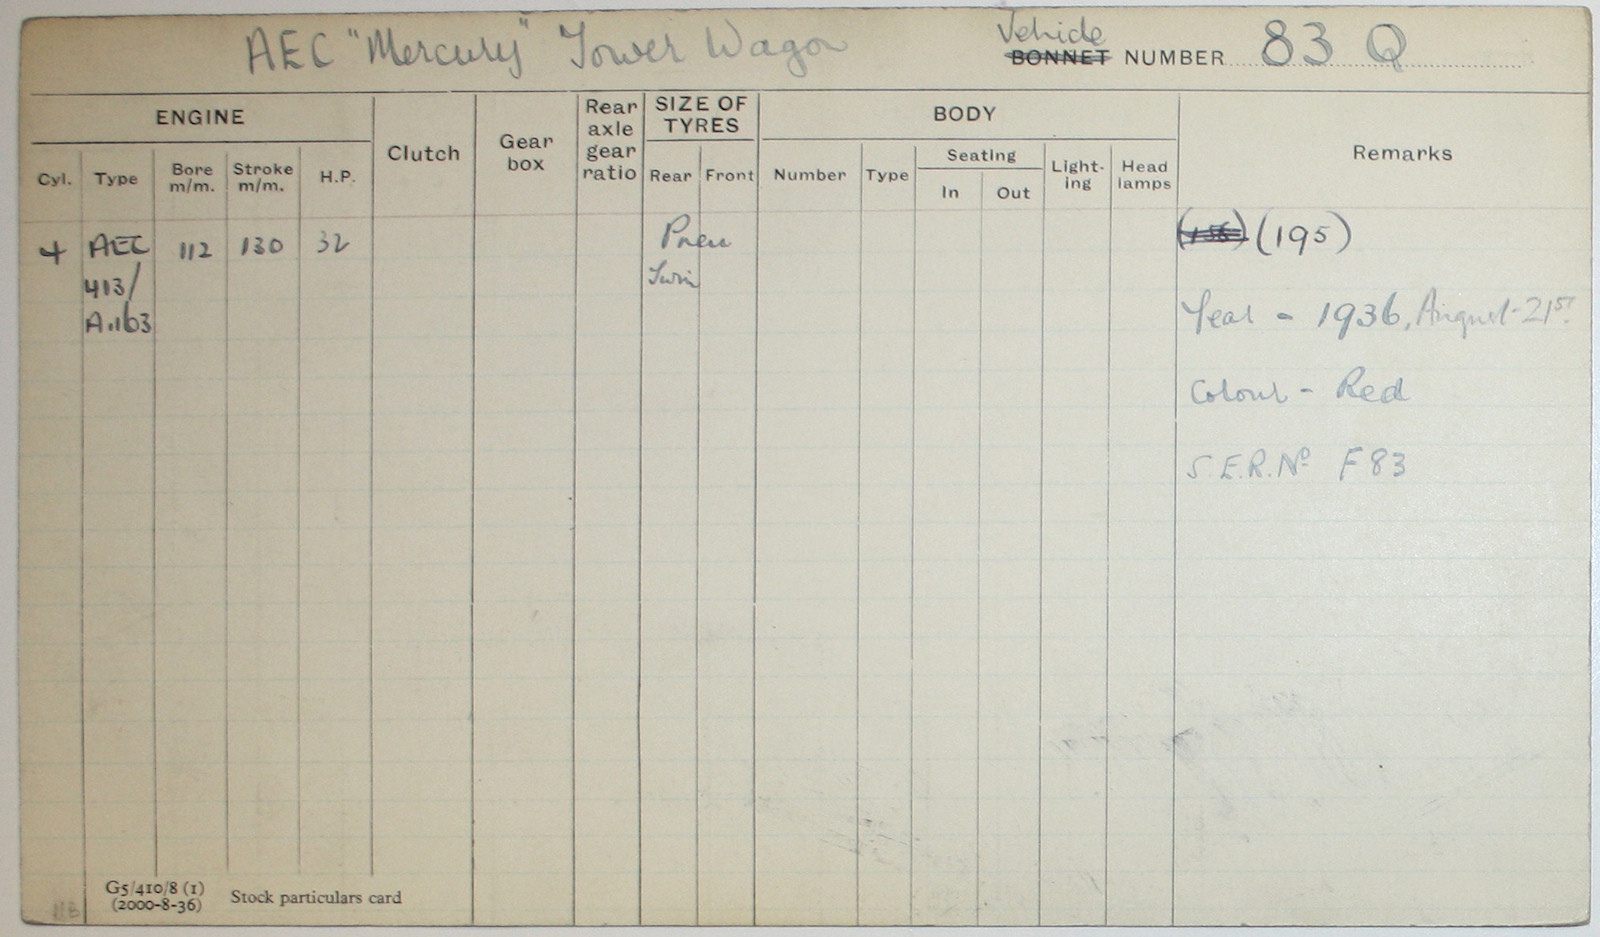 AEC "Mercury" Tower Wagon
Vehicle
BONNET NUMBER 83 Q
ENGINE
Clutch
Gear box
Rear axle gear ratio
SIZE OF TYRES
BODY
Remarks
Cyl. Type Bore m/m. Stroke m/m. H.P.
Rear Front
Number Type Seating In Out Light-ing Head lamps
4 AEC 112 130 32 Pneu (195)
413/ Twin
A.163 Year - 1936, August 21st
Colour - Red
S.E.R. No F83
G5/410/8 (1)
(2000-8-36) Stock particulars card